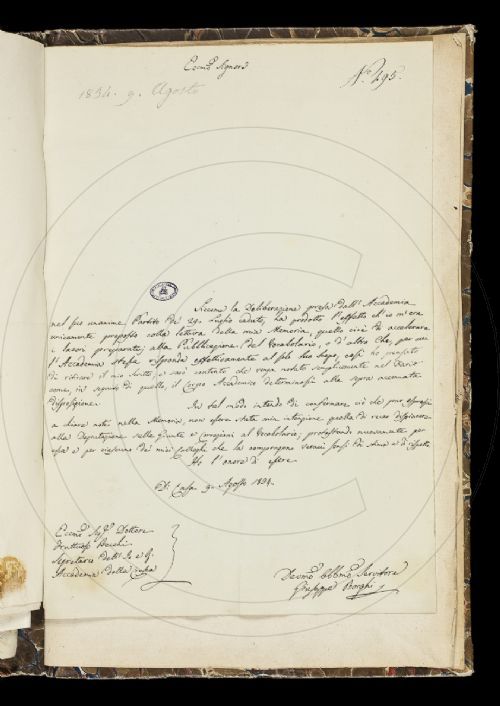 Eccmo. Signore
No. 495.
1834. 9. Agosto
Siccome la Deliberazione presa dall' Accademia
nel suo unanime Partito de' 29. Luglio caduto, ha prodotto l'effetto ch'io m'era
unicamente proposto colla lettura della mia Memoria, quello cioè di accelerare
i lavori preparanti alla Pubblicazione del Vocabolario, o d'altro che, per cui
l'Accademia stessa risponda effettivamente al solo suo scopo, così ho pensato
di ritirare il mio scritto, e sarò contento che venga notato semplicemente nel
come, in seguito di quello, il Corpo Accademico determinossi alla sopra accennata
disposizione.
In tal modo intendo di confermare, ciò che pure espressi
a chiare note nella Memoria, non essere stata mia intenzione quella di recar dispiacere
alla Deputazione sulle Giunte e Correzioni al Vocabolario; protestando nuovamente per
essa e per ciascuno dei miei Colleghi che la compongono sensi di stima e di rispetto.
Ho l'onore d'essere
Di Casa 9. Agosto 1834.
Eccmo. Sigr. Dottore
Fruttuoso Becchi
Segretario dell' I. e R.
Accademia della Crusca
Devmo. Obbmo. Servitore
Giuseppe Borghi